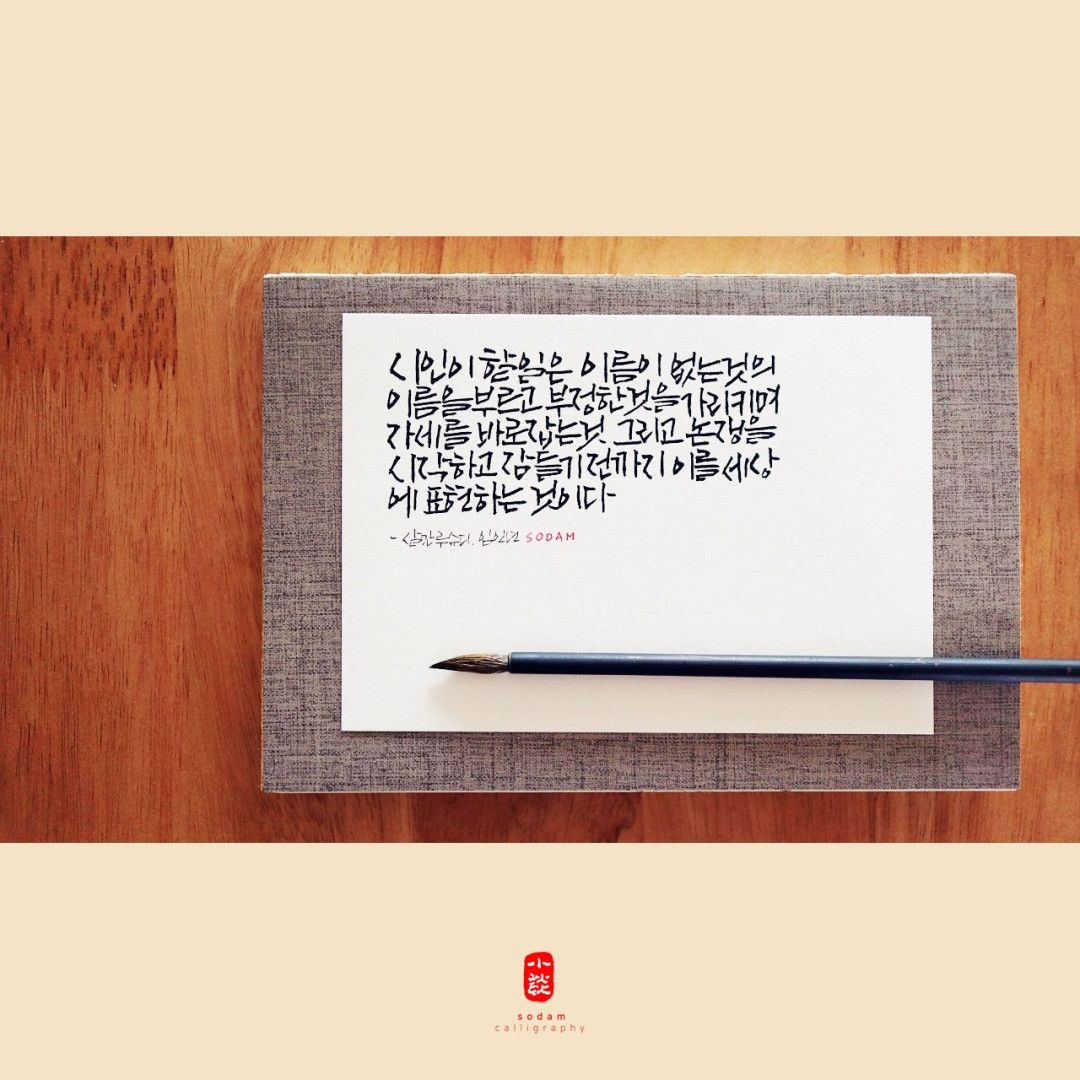 시인이 할일은 이름이 없는것의
이름을 부르고 부정한것을 가리키며
자세를 바로잡는것 그리고 논쟁을
시작하고 잠들기전까지 이를 세상
에 표현하는 것이다
- 살만 루슈디. 임인년 SODAM
小談
sodam
calligraphy